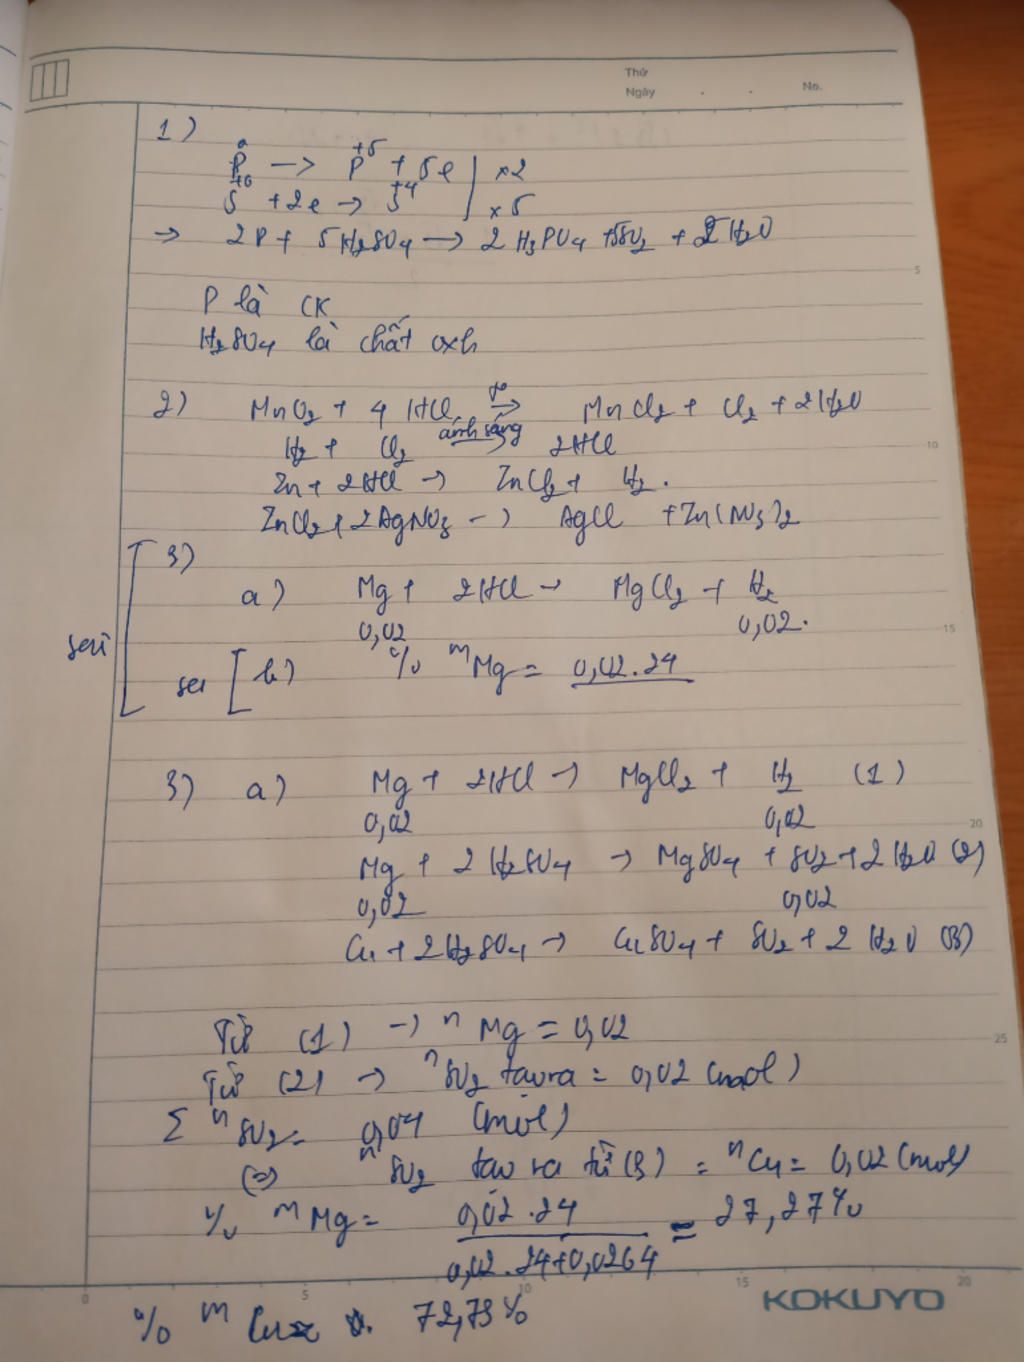 Thứ
Ngày . . No.
1)
0 +5
P → P + 5e | x2
+6 +4
S + 2e → S | x5
=> 2P + 5H2SO4 → 2H3PO4 + 5SO2 + 2H2O
5
P là CK
H2SO4 là chất oxh
2) MnO2 + 4HCl →(t°) MnCl2 + Cl2 + 2H2O
10
H2 + Cl2 →(ánh sáng) 2HCl
Zn + 2HCl → ZnCl2 + H2.
ZnCl2 + 2AgNO3 → AgCl + Zn(NO3)2
3)
a) Mg + 2HCl → MgCl2 + H2
0,02 0,02.
15
b) % mMg = 0,02.24
3) a) Mg + 2HCl → MgCl2 + H2 (1)
0,02 0,02
20
Mg + 2H2SO4 → MgSO4 + SO2 + 2H2O (2)
0,02 0,02
Cu + 2H2SO4 → CuSO4 + SO2 + 2H2O (3)
Từ (1) → nMg = 0,02
25
Từ (2) → nSO2 tạo ra = 0,02 (mol)
Σ nSO2 = 0,04 (mol)
(=) nSO2 tạo ra từ (3) = nCu = 0,02 (mol)
% mMg = 0,02.24 = 27,27%
0,02.24+0,0264
0 5 10 15 20
KOKUYO
% m Cu 72,73%